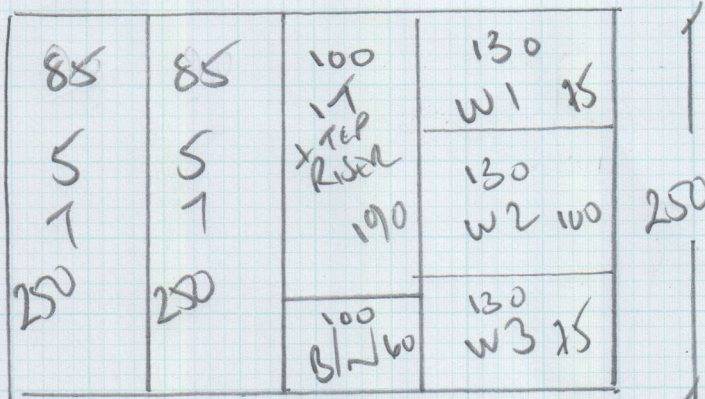 85
5
1
250
85
5
1
250
100
1T
x TEP
RISER
190
100
BIN 60
130
W1 75
130
W2 100
130
W3 75
250